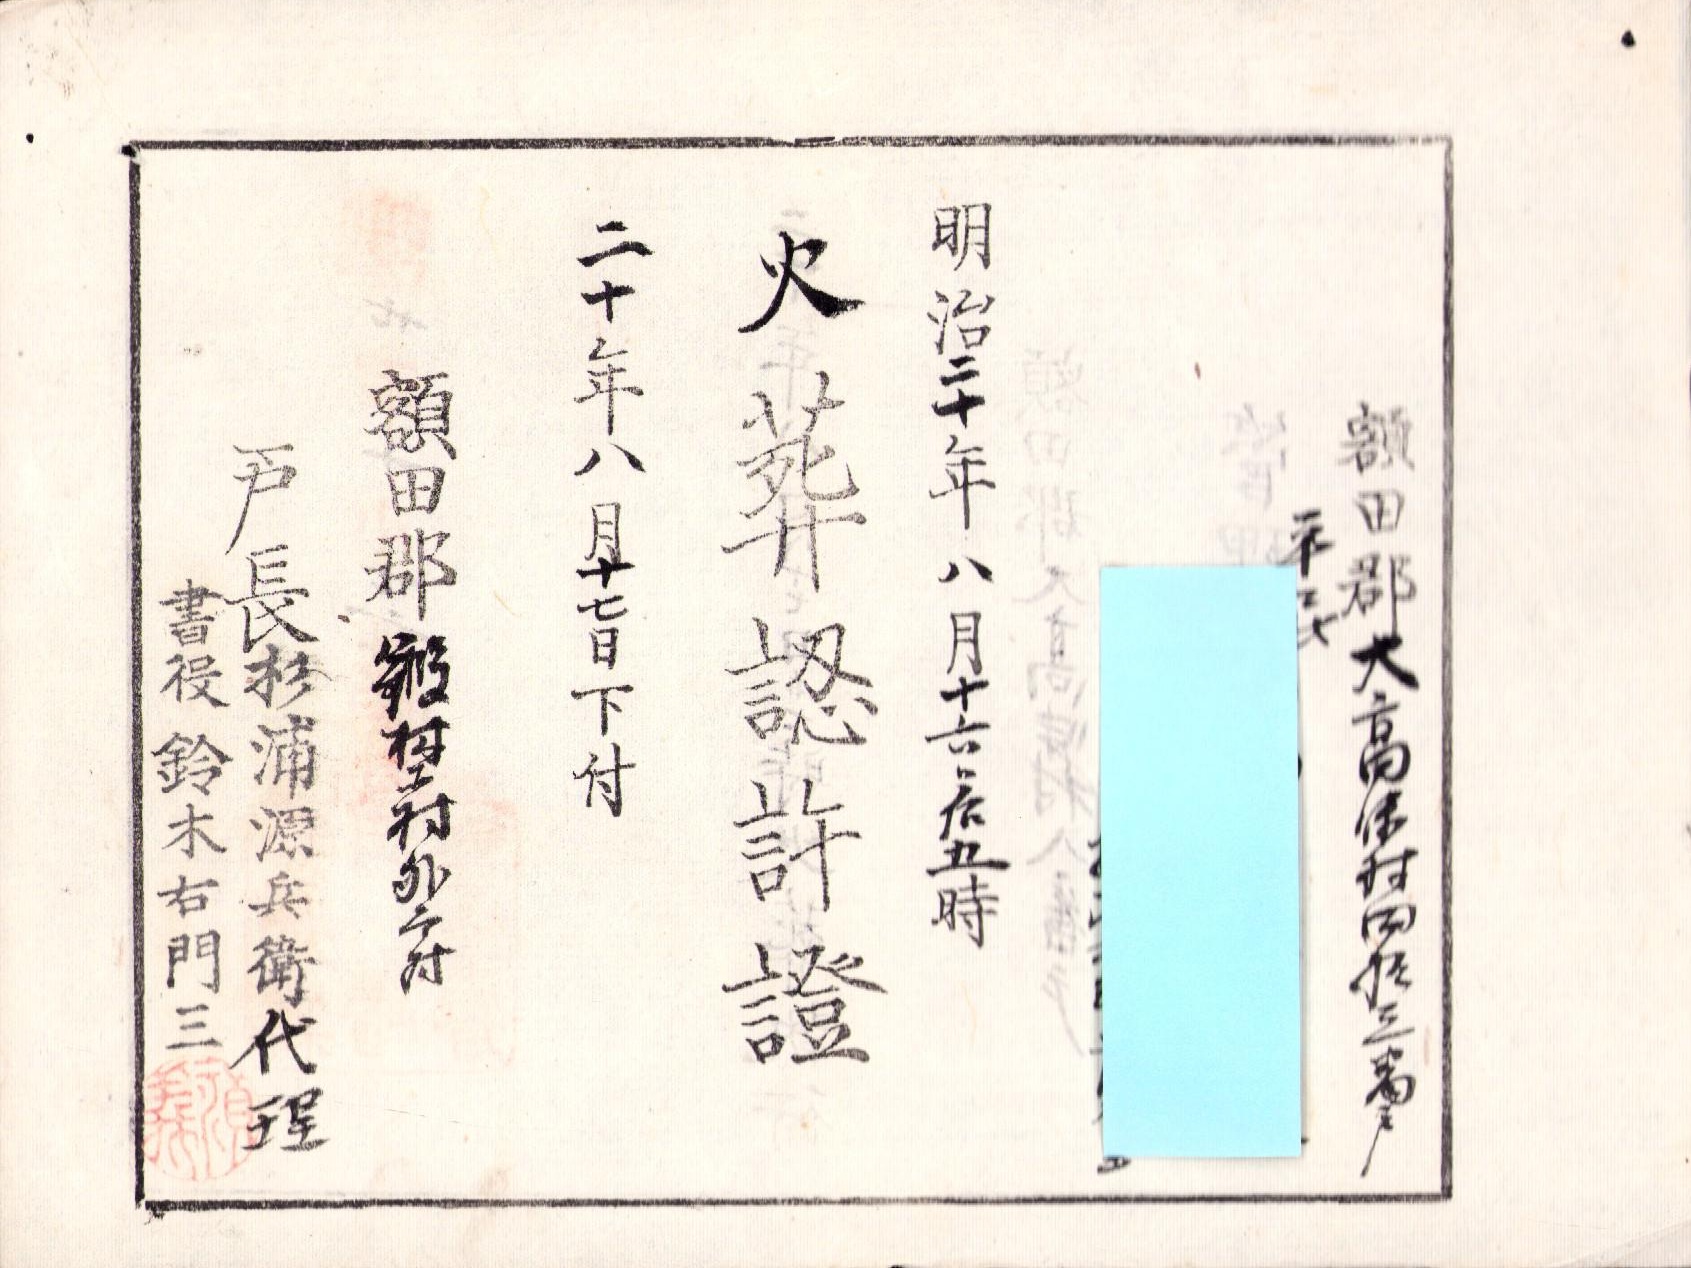 額田郡大高味村四拾三番戸
平民
明治二十年八月十六日后五時
火葬認許證
二十年八月十七日下付
額田郡
村外
戸長杉浦源兵衛代理
書役鈴木右門三